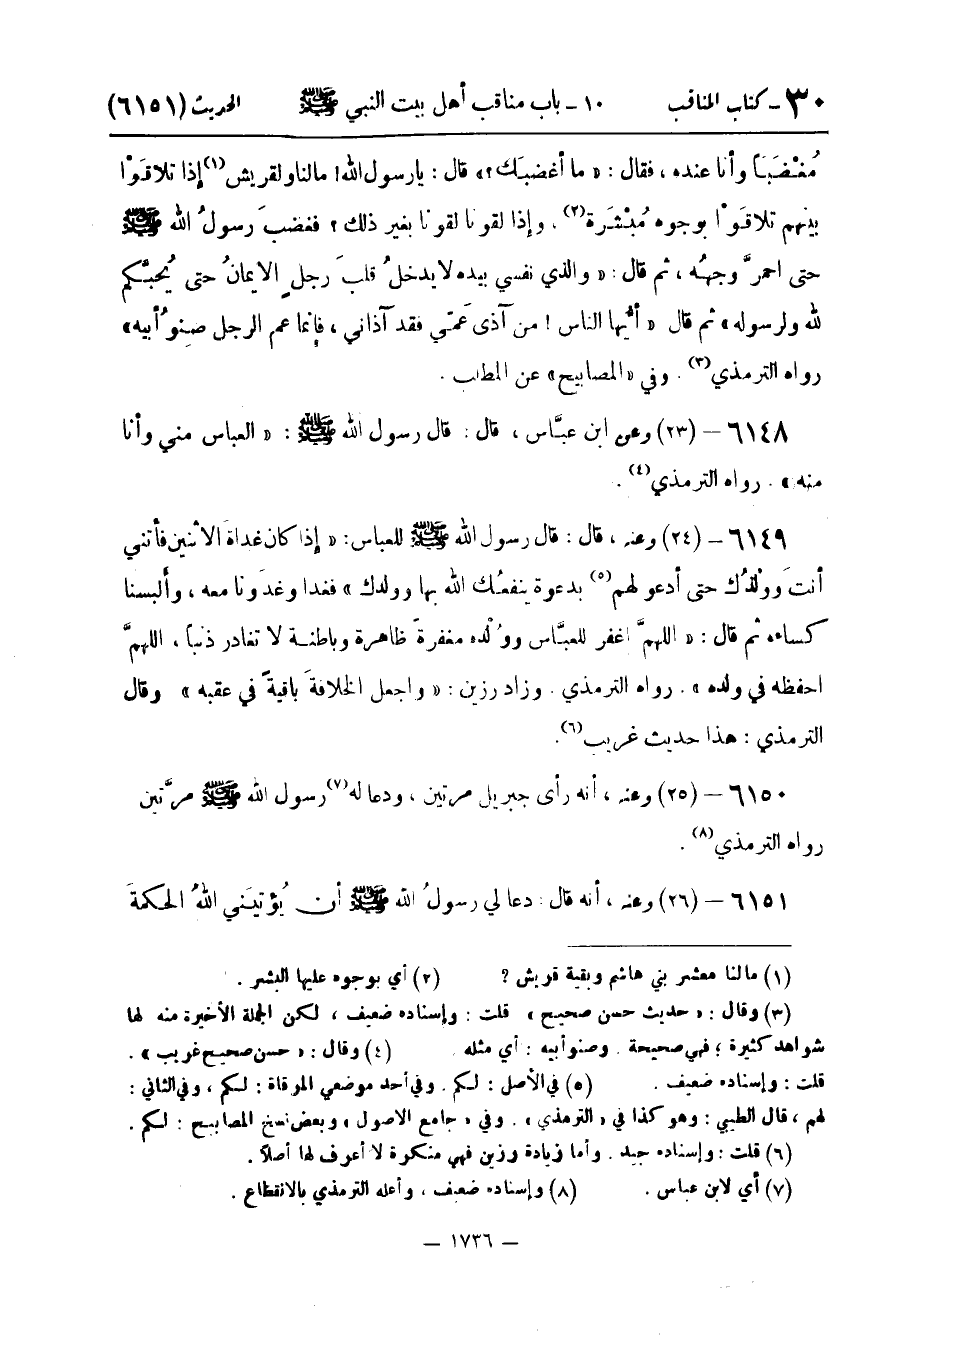 ٣٠ - كتاب المناقب ١٠ - باب مناقب أهل بيت النبي ﷺ الحديث (٦١٥١)
مُغْضَبَاً وأنا عنده ، فقال : « ما أغضبَك ؟ » قال : يارسول الله! مالنا ولقريش(١) إذا تلاقَوْا
بينهم تلاقَوْا بوجوه مُبْشَرة(٢) ، وإذا لقونا لقونا بغير ذلك ؟ فغضبَ رسولُ الله ﷺ
حتى احمرَّ وجهُه ، ثم قال : « والذي نفسي بيده لا يدخلُ قلبَ رجلٍ الايمانُ حتى يُحبَّكم
لله ولرسوله » ثم قال « أيُّها الناس ! من آذى عمّي فقد آذاني ، فإنما عم الرجل صِنوُ أبيه »
رواه الترمذي(٣) . وفي « المصابيح » عن المطلب .
٦١٤٨ – (٢٣) وعن ابن عبَّاس ، قال : قال رسول الله ﷺ : « العباس مني وأنا
منه » . رواه الترمذي(٤) .
٦١٤٩ – (٢٤) وعنه ، قال : قال رسول الله ﷺ للعباس: « إذا كان غداةَ الاثنين فأتني
أنتَ وولْدُك حتى أدعو لهم(٥) بدعوة ينفعُك الله بها وولدك » فغدا وغدَونا معه ، وألبسنا
كساءه ثم قال : « اللهمَّ اغفر للعبَّاس ووُلْده مغفرةً ظاهرة وباطنـة لا تغادر ذنباً ، اللهمَّ
احفظه في ولده » . رواه الترمذي . وزاد رزين : « واجعل الخلافةَ باقيةً في عقبه » وقال
الترمذي : هذا حديث غريب(٦).
٦١٥٠ – (٢٥) وعنه ، أنه رأى جبريل مرتين ، ودعا له(٧) رسول الله ﷺ مرَّتين
رواه الترمذي(٨) .
٦١٥١ – (٢٦) وعنه ، أنه قال : دعا لي رسولُ الله ﷺ أن يُؤتيَني اللهُ الحكمةَ
(١) مالنا معشر بني هاشم وبقية قريش ؟ (٢) أي بوجوه عليها البشر .
(٣) وقال : « حديث حسن صحيح » قلت : وإسناده ضعيف ، لكن الجملة الأخيرة منه لها
شواهد كثيرة ؛ فهي صحيحة . وصنو أبيه : أي مثله . (٤) وقال : « حسن صحيح غريب » .
قلت : وإسناده ضعيف . (٥) في الأصل : لكم . وفي أحد موضعي المرقاة : لكم ، وفي الثاني :
لهم ، قال الطيبي : وهو كذا في « الترمذي » . وفي « جامع الاصول » وبعض نسخ المصابيح : لكم .
(٦) قلت : وإسناده جيد . وأما زيادة رزين فهي منكرة لا أعرف لها أصلاً .
(٧) أي لابن عباس . (٨) وإسناده ضعيف ، وأعله الترمذي بالانقطاع .
– ١٧٣٦ –